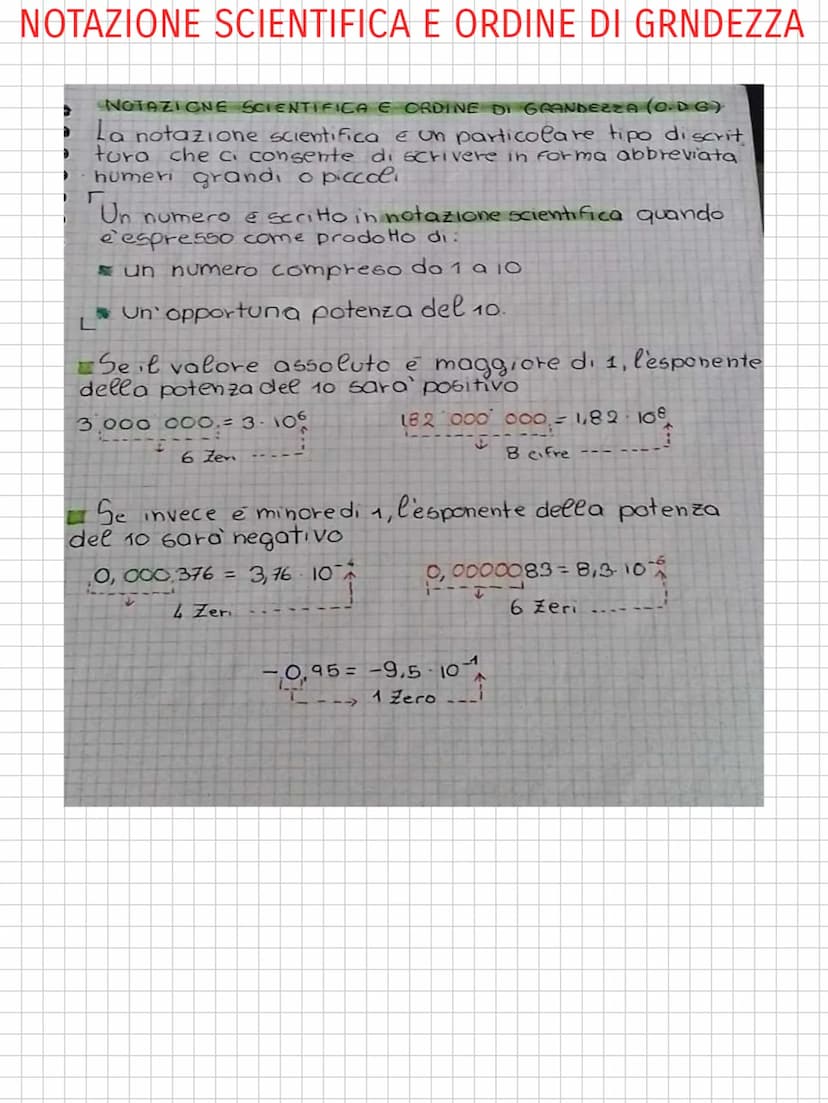 NOTAZIONE SCIENTIFICA E ORDINE DI GRNDEZZA
NOTAZIONE SCIENTIFICA E ORDINE DI GRANDEZZA (O.D G)
La notazione scientifica è un particolare tipo di scrit
tura che ci consente di scrivere in forma abbreviata
numeri grandi o piccoli
Un numero è scritto in notazione scientifica quando
è espresso come prodotto di:
un numero compreso da 1 a 10
un' opportuna potenza del 10.
Se il valore assoluto è maggiore di 1, l'esponente
della potenza del 10 sarà positivo
3 000 000, = 3 · 10⁶ 182 000 000, = 1,82 · 10⁸
6 Zeri 8 cifre
Se invece è minore di 1, l'esponente della potenza
del 10 sarà negativo
0,000376 = 3,76 · 10⁻⁴ 0,0000083 = 8,3 · 10⁻⁶
4 Zeri 6 Zeri
-0,95 = -9,5 · 10⁻¹
1 Zero